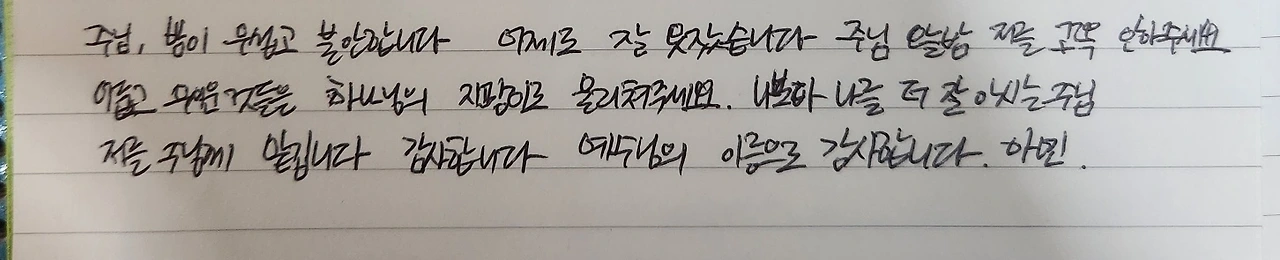 주님, 밤이 무섭고 불안합니다 어제도 잘 못잤습니다 주님 오늘밤 저를 꼬옥 안아주세요
어둡고 무서운 것들을 하나님의 지팡이로 물리쳐주세요. 나보다 나를 더 잘 아시는 주님
저를 주님께 맡깁니다 감사합니다 예수님의 이름으로 감사합니다. 아멘.